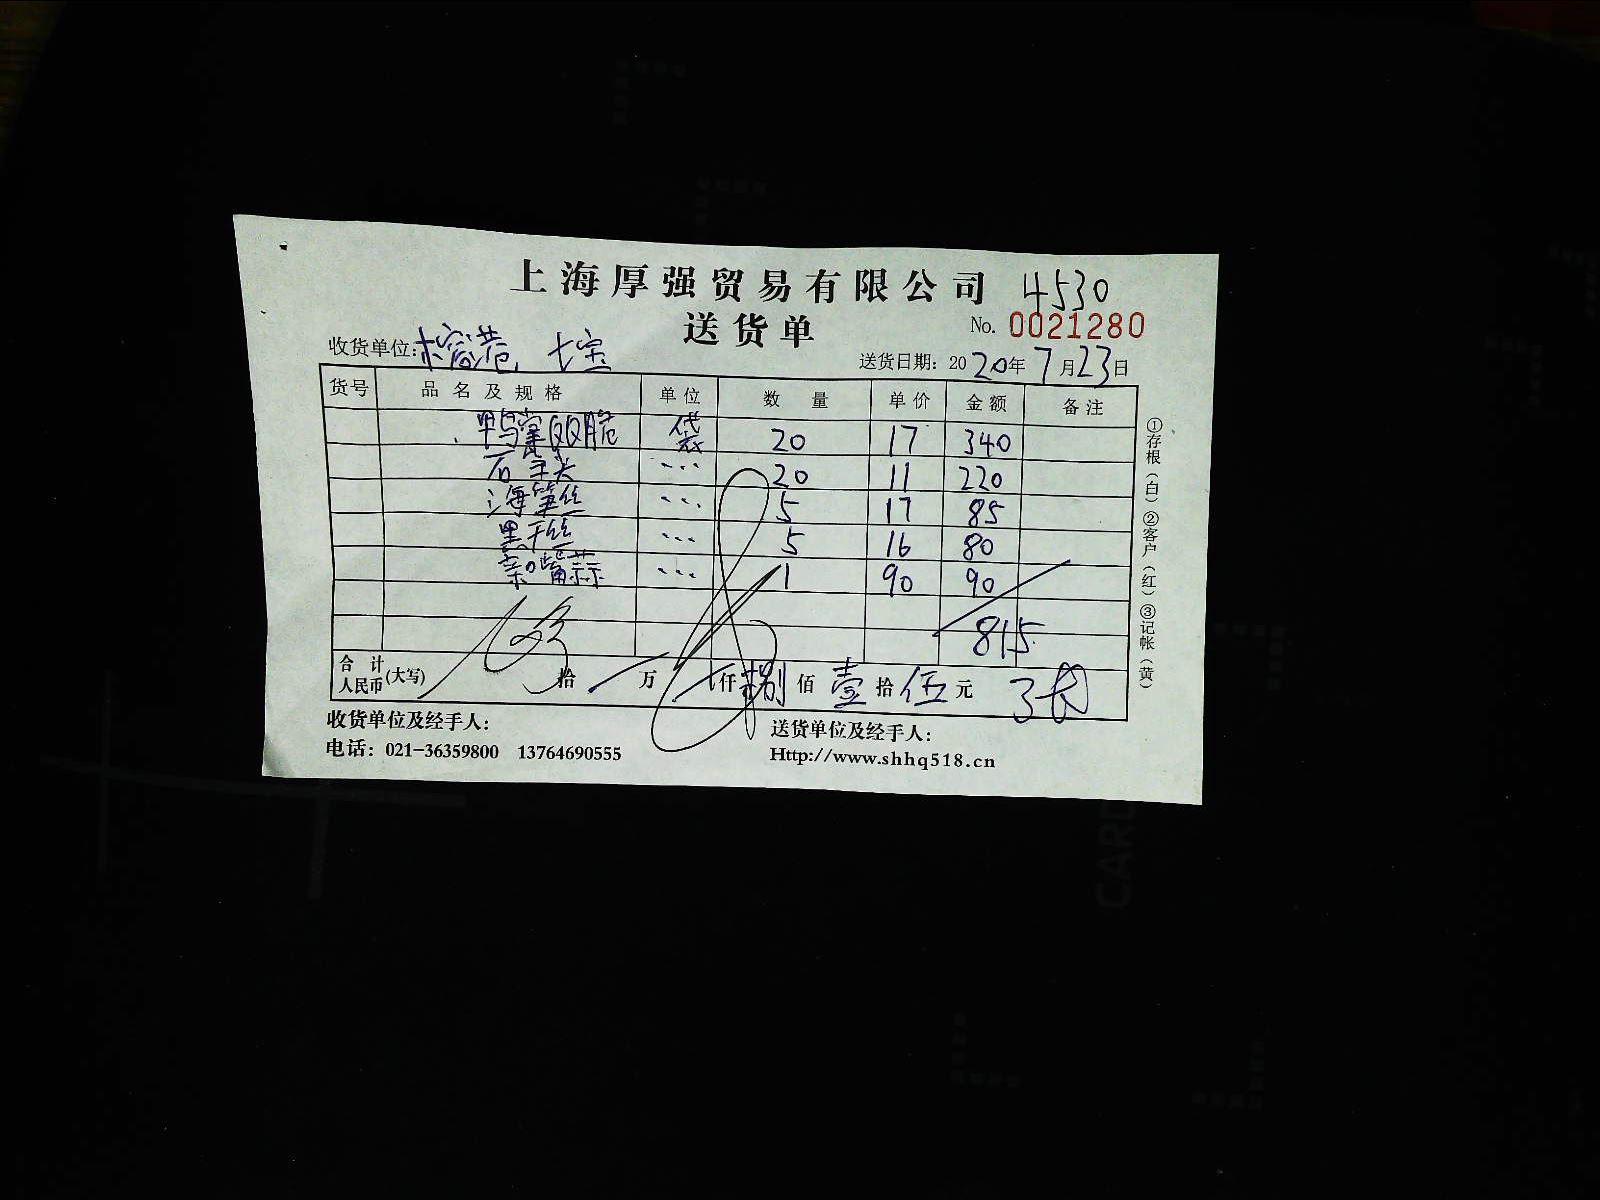 上海厚强贸易有限公司 4530
送货单 No. 0021280
收货单位:榕港 七宝 送货日期: 2020年7月23日
货号 品名及规格 单位 数量 单价 金额 备注
鸭掌QQ脆 袋 20 17 340
石字头 〃 20 11 220
海笋丝 〃 5 17 85
黑干丝 〃 5 16 80
亲嘴蒜 〃 1 90 90
815
合计人民币(大写) 拾 万 仟捌佰壹拾伍元
收货单位及经手人: 送货单位及经手人:
电话: 021-36359800 13764690555 Http://www.shhq518.cn
①存根(白)②客户(红)③记帐(黄)